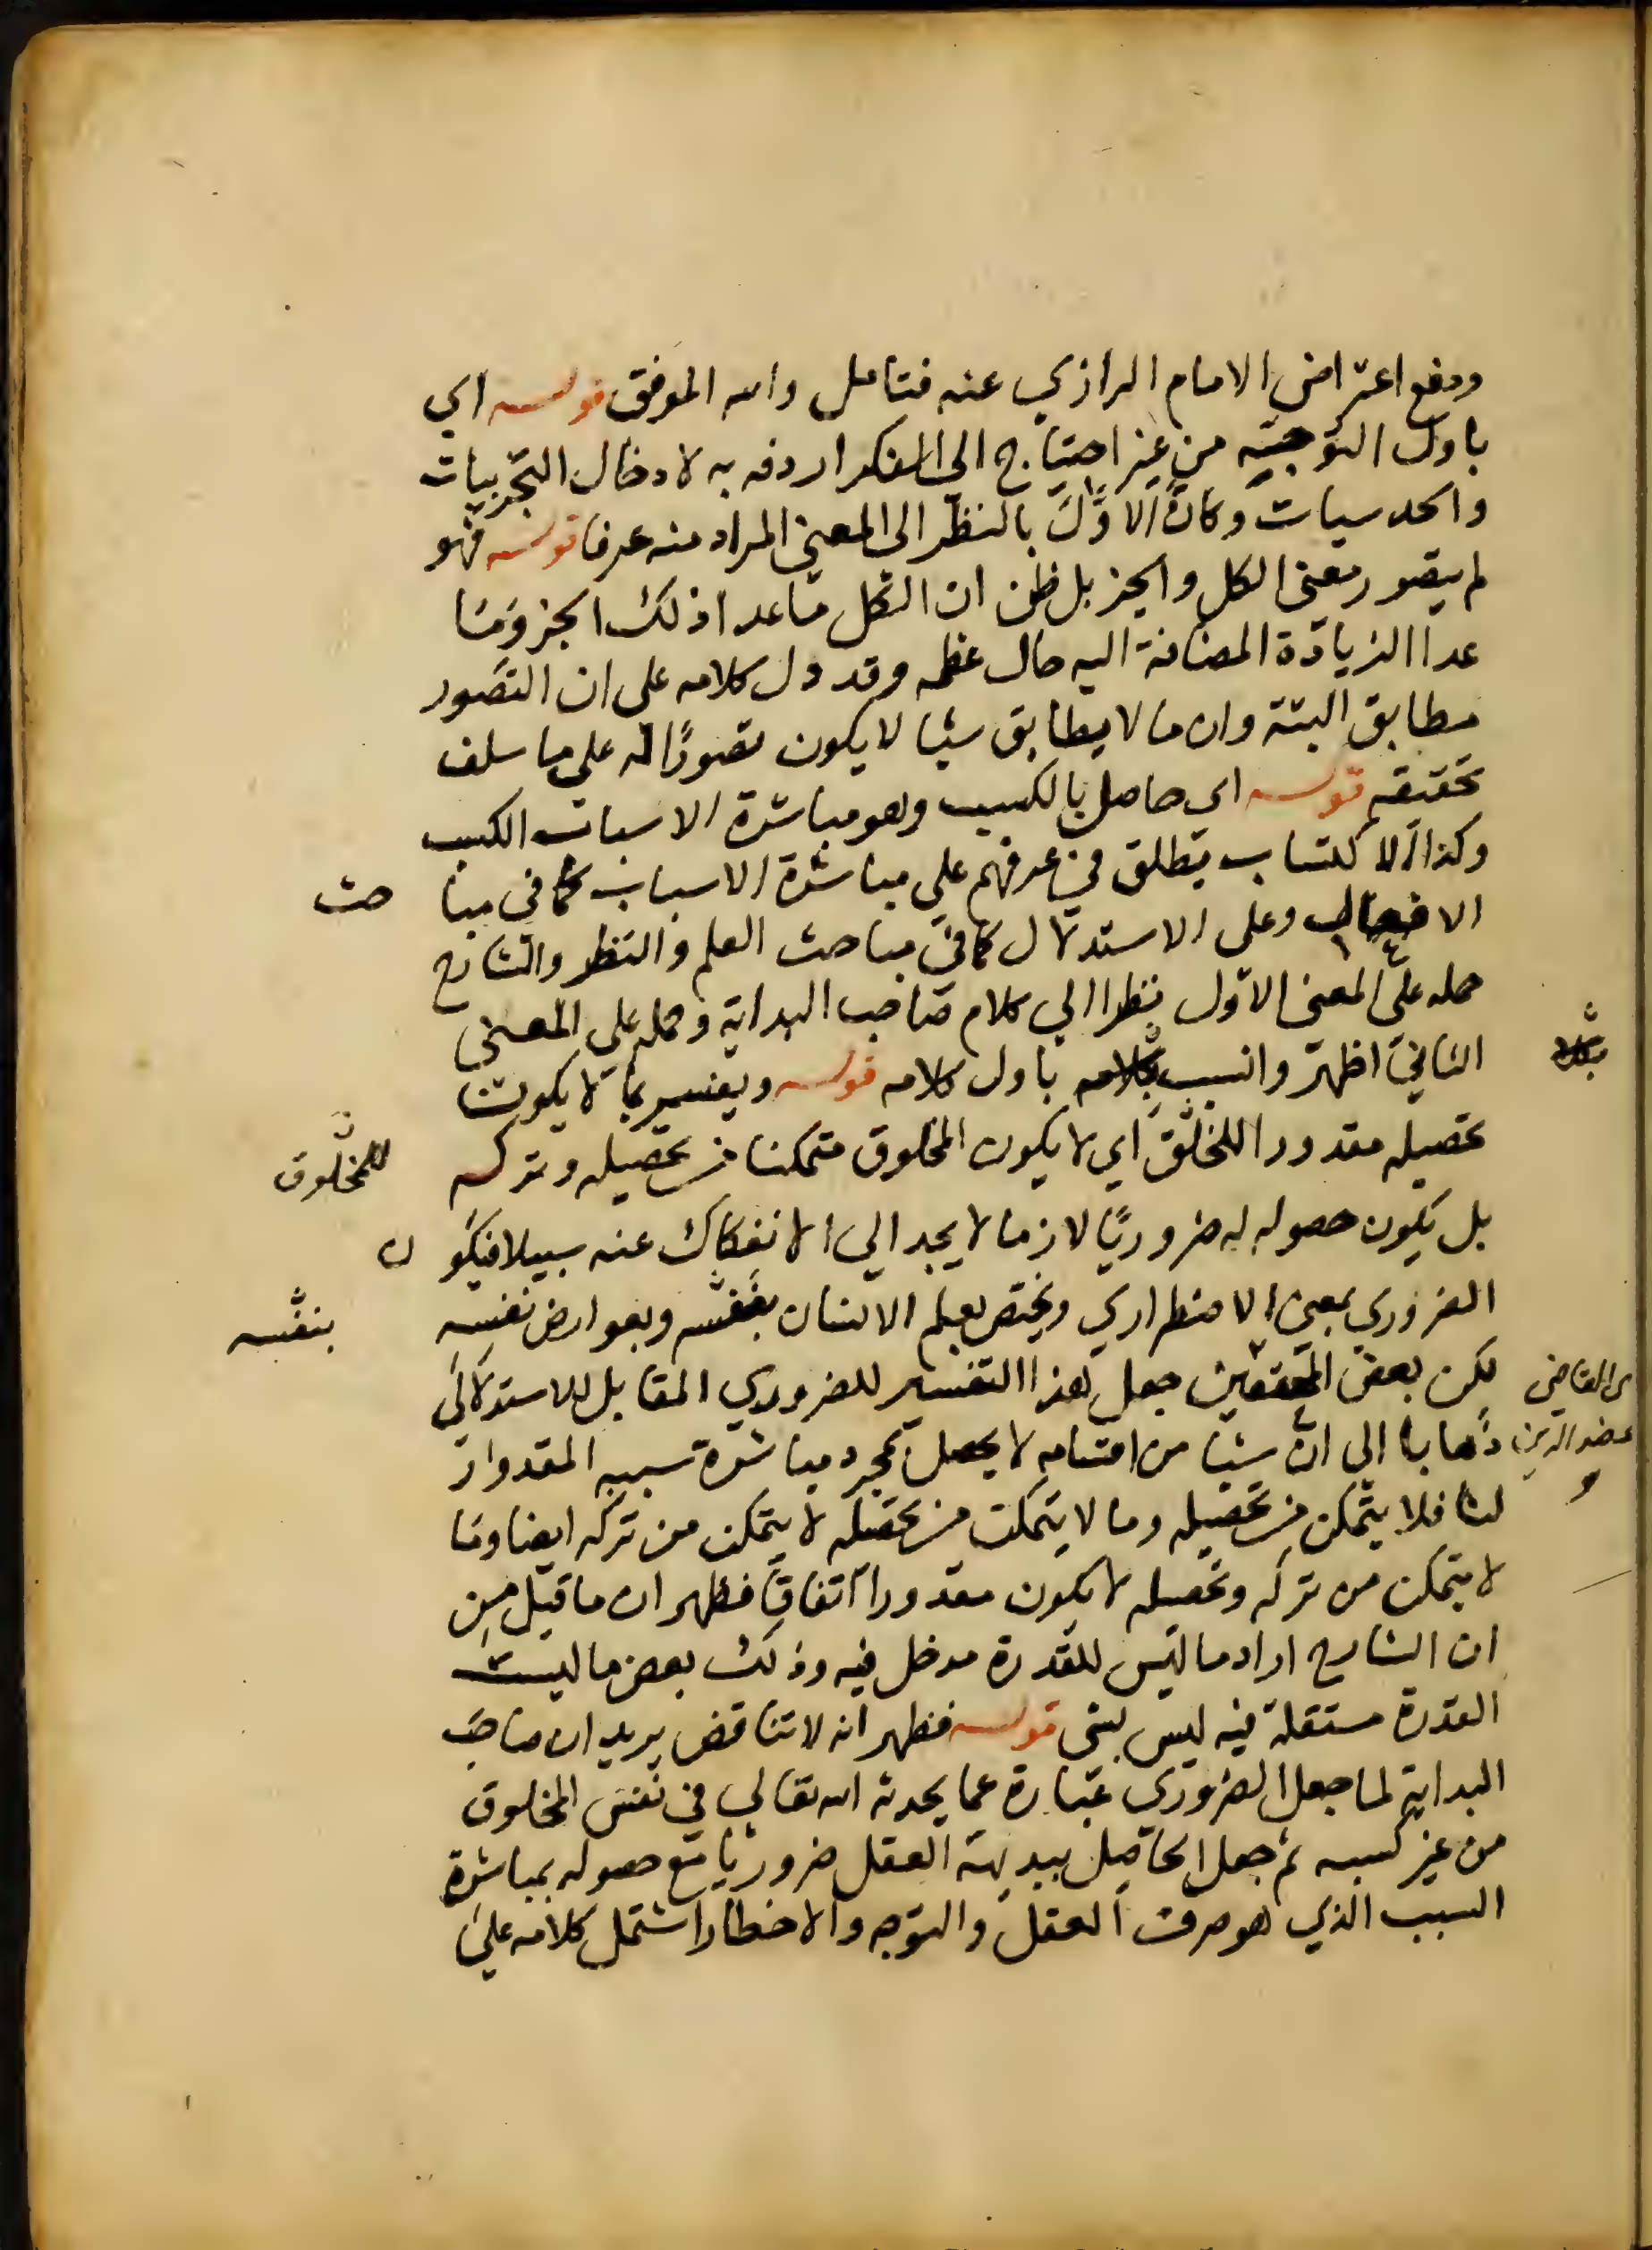 ودفع اعتراض الامام الرازي عنه فتامل والله الموفق قوله اي
باول التوجيه من غير احتياج الى الفكر اردفه به لادخال التجربيات
والحدسيات وكان الاول بالنظر الى المعنى المراد منه عرفا قوله فهو
لم يتصور معنى الكل والجز بل ظن ان الكل ما عدا ذلك الجز وما
عدا الزيادة المضافة اليه حال عظمه وقد دل كلامه على ان التصور
مطابق البتة وان ما لا يطابق شيا لا يكون تصورا له على ما سلف
تحقيقه قوله اي حاصل بالكسب وهو مباشرة الاسباب الكسب
وكذا الاكتساب يطلق في عرفهم على مباشرة الاسباب كما في مبا حث
الافعال وعلى الاستدلال كما في مباحث العلم والنظر والشارح
حمله على المعنى الاول نظرا الي كلام صاحب البداية وحمله علي المعنى
الثاني اظهر وانسب بكلامه باول كلامه قوله ويفسير بما لا يكون
تحصيله مقدورا للخلق اي لا يكون المخلوق متمكنا من تحصيله وتركه
للمخلوق
بل يكون حصوله له ضروريا لازما لا يجد الي الانفكاك عنه سبيلا فيكو ن
الضروري بمعنى الاضطراري ويختص بعلم الانسان بنفسه وبعوارض نفسه
بنفسه
لكن بعض المحققين جعل هذا التفسير للضروري المقابل للاستدلالي
القاضي
عضد الدين
ذهابا الى ان شيا من اقسامه لا يحصل بمجرد مباشرة سببه المقدوار
لنا فلا يتمكن من تحصيله وما لا يتمكن من تحصيله لا يتمكن من تركه ايضا وما
لا يتمكن من تركه وتحصيله لا يكون مقدورا اتفاقا فظهر ان ما قيل من
ان الشارح اراد ما ليس للقدرة مدخل فيه وذلك بعض ما ليست
القدرة مستقلة فيه ليس بشي قوله فظهر انه لا تناقض يريد ان صاحب
البداية لما جعل الضروري عبارة عما يحدثه الله تعالي في نفس المخلوق
من غير كسبه ثم جعل الحاصل ببديهة العقل ضروريا مع حصوله بمباشرة
السبب الذي هو صرف العقل والتوجه والاخطار اشتمل كلامه علي